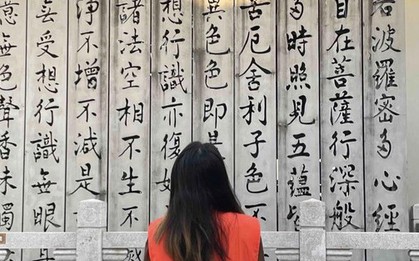 若波羅密多心經
自在菩薩行深般
多時照見五蘊皆
苦厄舍利子色不
異色色即是
想行識亦復如
諸法空相不生不
淨不增不減是
無受想行識無眼
意無色聲香味觸